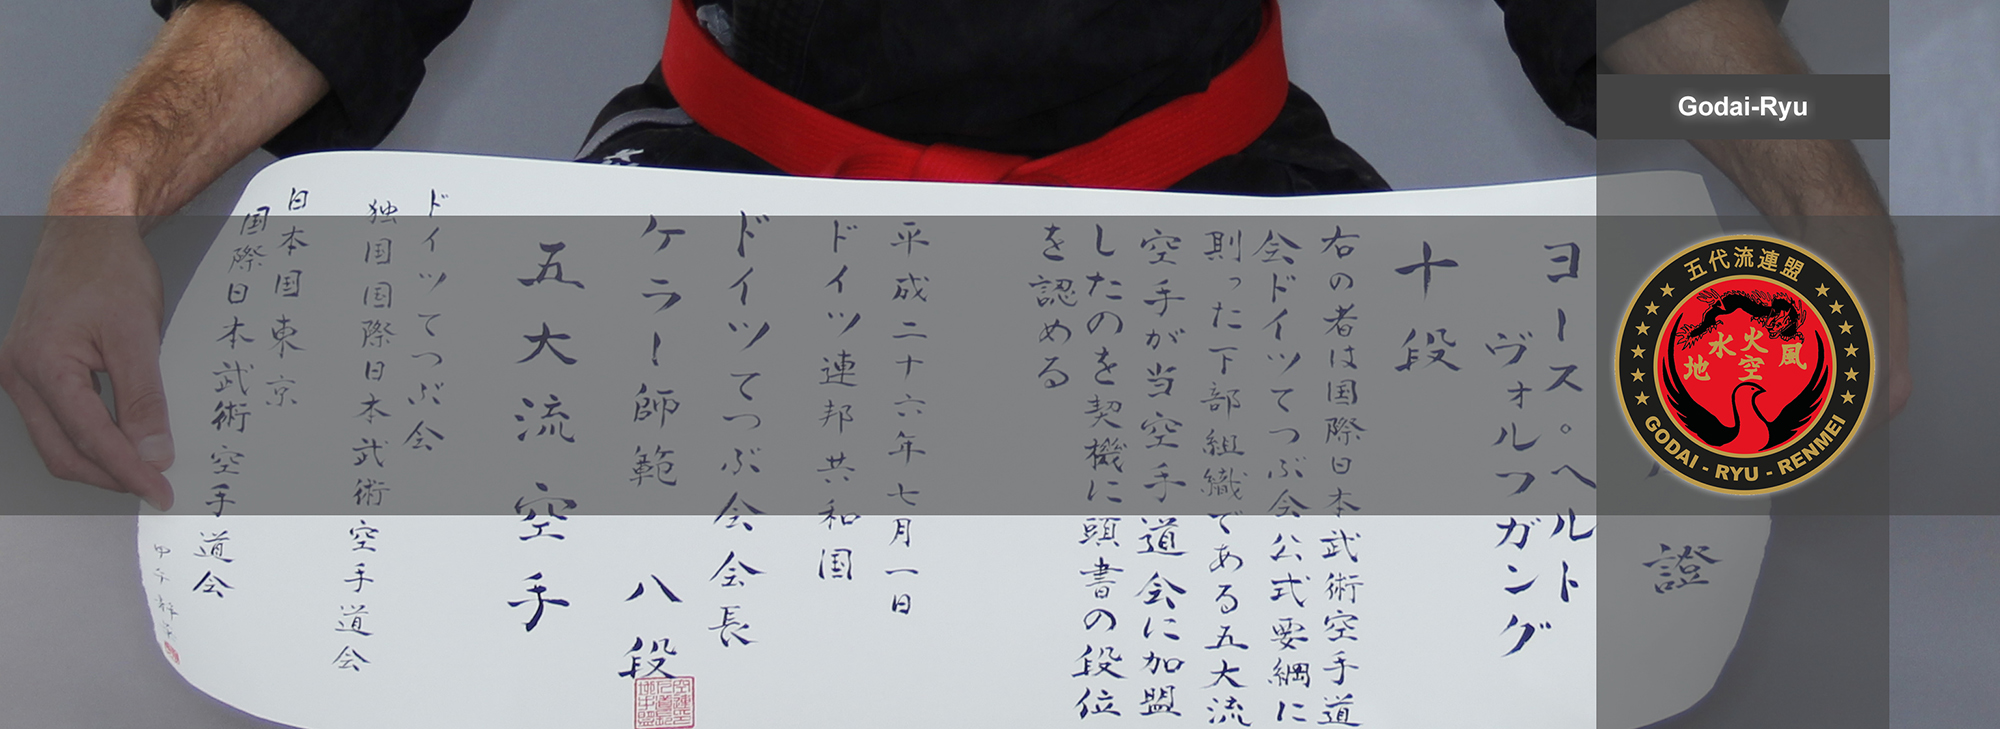 Godai-Ryu
五代流連盟
地水火空風
GODAI - RYU - RENMEI
證
ヨース。ヘルト
ヴォルフガング
十段
右の者は国際日本武術空手道
会ドイツてつぶ会公式要綱に
則った下部組織である五大流
空手が当空手道会に加盟
したのを契機に頭書の段位
を認める
平成二十六年七月一日
ドイツ連邦共和国
ドイツてつぶ会会長
ケラー師範 八段
五大流空手
ドイツてつぶ会
独国国際日本武術空手道会
日本国東京
国際日本武術空手道会